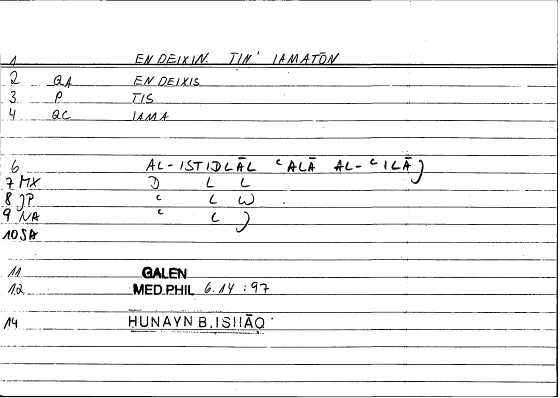 1 ENDEIXIN. TIN' IAMATŌN
2 QA ENDEIXIS
3 P TIS
4 QC IAMA
6 AL-ISTIDLĀL ʿALĀ AL-ʿILĀǦ
7 MX D L L
8 JP ʿ L W .
9 NA ʿ L J
10 SA
11 GALEN
12 MED.PHIL 6.14 :97
14 HUNAYN B.ISḤĀQ